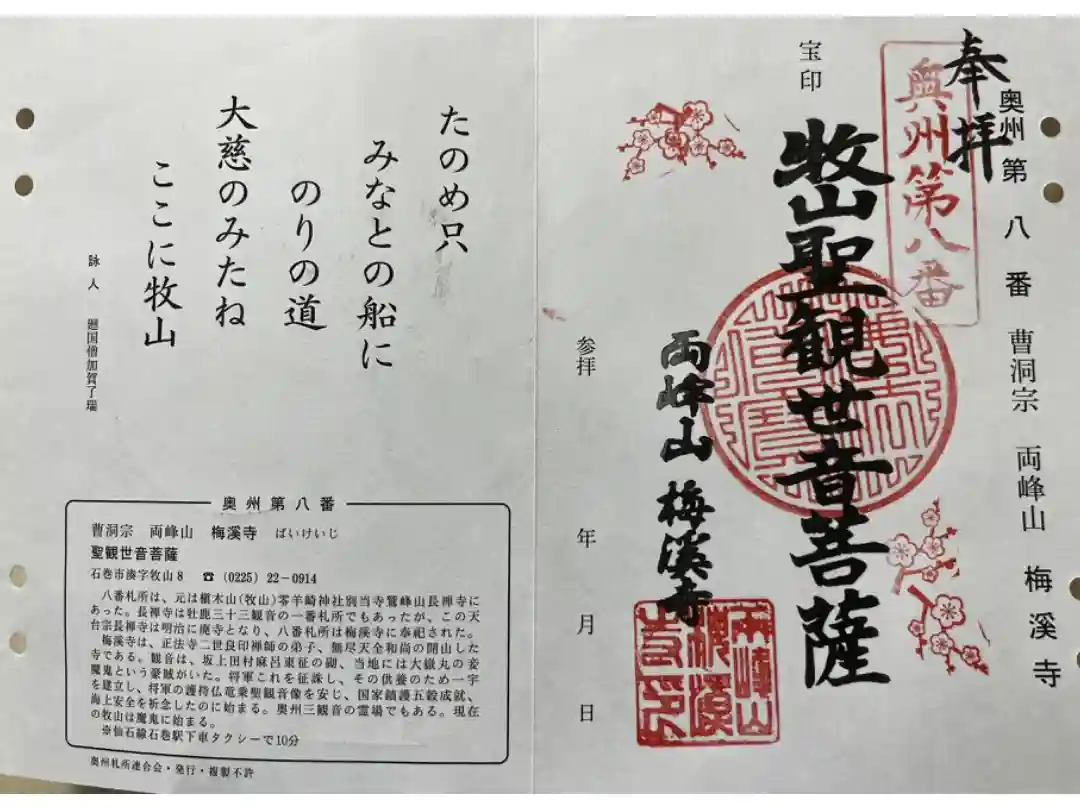 奥州第八番 曹洞宗 両峰山 梅溪寺
奉拝
奥州第八番
宝印
牧山聖観世音菩薩
両峰山 梅溪寺
両峰山
梅溪
寺印
参拝 年 月 日
たのめ只
みなとの船に
のりの道
大慈のみたね
ここに牧山
詠人 廻国僧加賀了瑞
奥州第八番
曹洞宗 両峰山 梅溪寺 ばいけいじ
聖観世音菩薩
石巻市湊字牧山8 ☎(0225)22-0914
八番札所は、元は槇木山(牧山)零羊崎神社別当寺鷲峰山長禅寺に
あった。長禅寺は牡鹿三十三観音の一番札所でもあったが、この天
台宗長禅寺は明治に廃寺となり、八番札所は梅溪寺に奉祀された。
梅溪寺は、正法寺二世良印禅師の弟子、無尽天全和尚の開山した
寺である。観音は、坂上田村麻呂東征の砌、当地には大嶽丸の妾
魔鬼という豪賊がいた。将軍これを征誅し、その供養のため一宇
を建立し、将軍の護持仏竜乗聖観音像を安じ、国家鎮護五穀成就、
海上安全を祈念したのに始まる。奥州三観音の霊場でもある。現在
の牧山は魔鬼に始まる。
※仙石線石巻駅下車タクシーで10分
奥州札所連合会・発行・複製不許